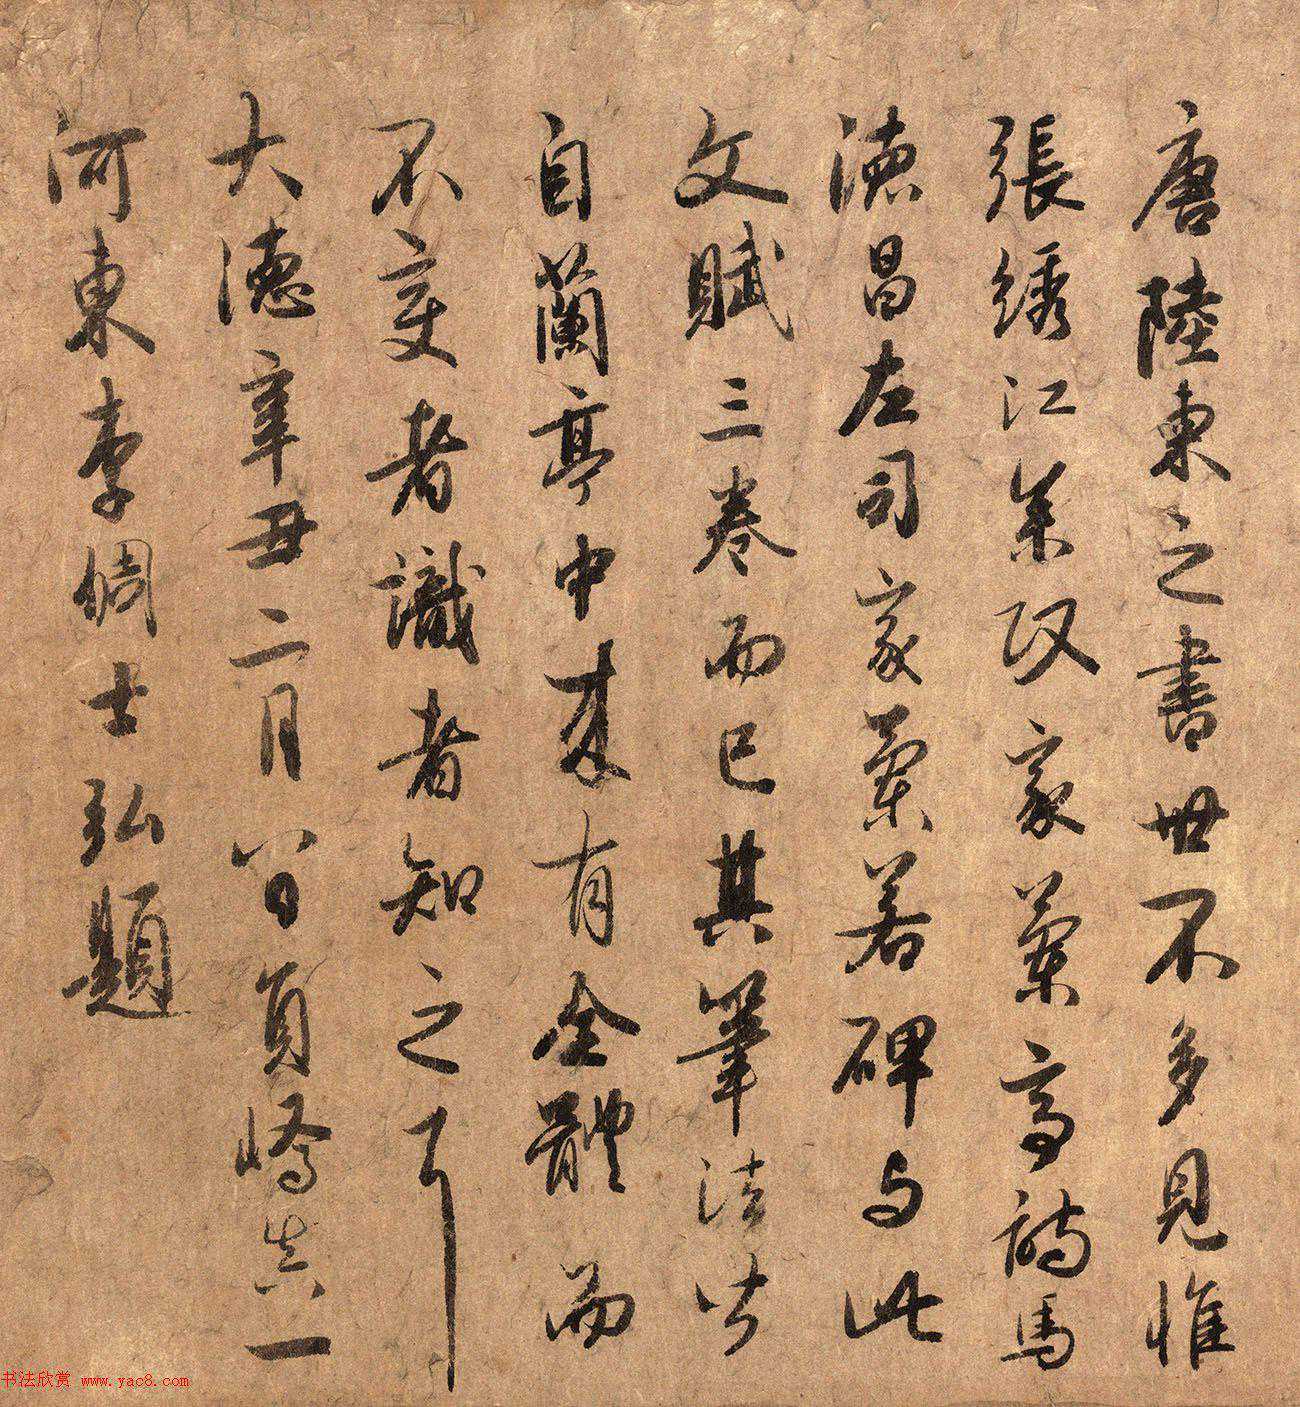 唐陸柬之書世不多見惟
張綉江參政家蘭亭詩馬
德昌左司家蘭若碑与此
文賦三卷而已其筆法皆
自蘭亭中來有全體而
不變者識者知之耳
大德辛丑二月八日員嶠真一
河東李倜士弘題
书法欣赏 www.yac8.com